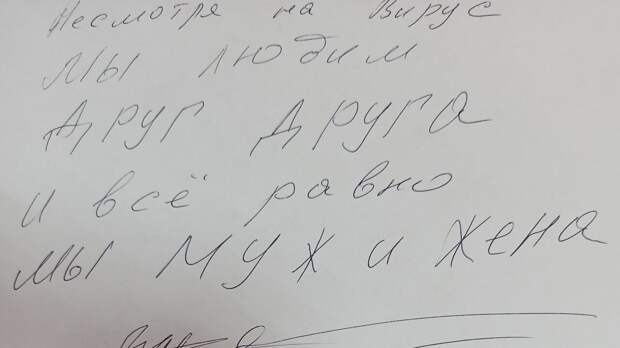 Несмотря на Вирус
Мы любим
Друг Друга
и всё равно
мы Муж и Жена